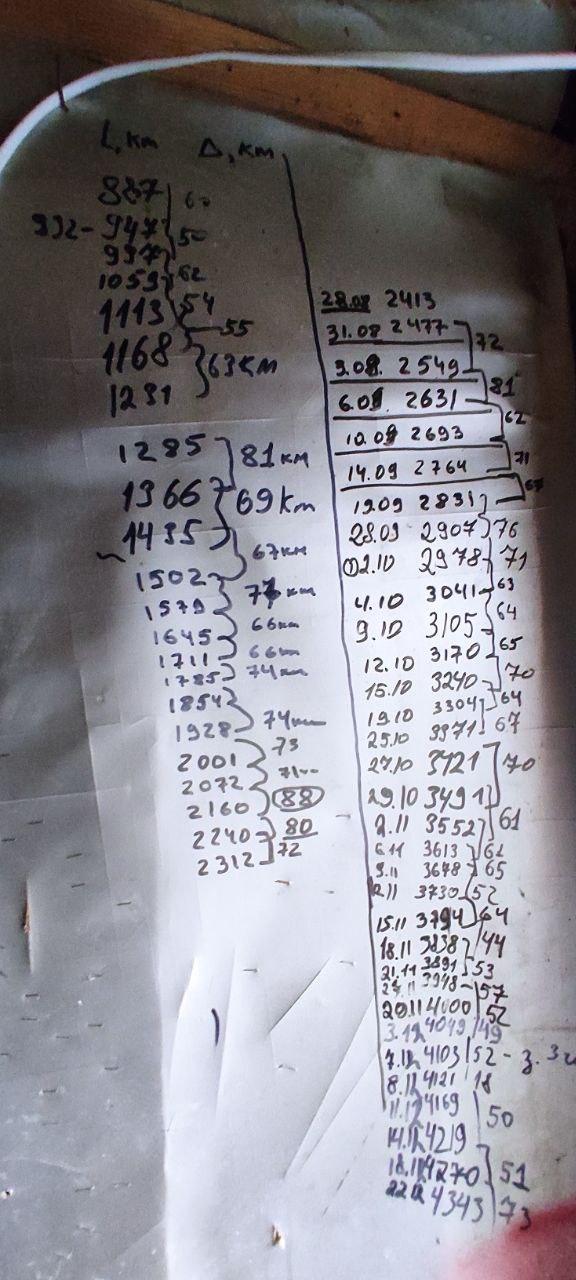 L, км Δ, км
887 60
992 - 947 50
997 62
1059
1113 54
55
1168 63км
1231
1285 81км
1366 69км
1435 67км
1502
1579 66км
1645 66км
1711 74км
1785
1854
1928 74км
2001 73
2072 71
2160 88
2240 80
2312 72
28.08 2413
31.08 2477 72
3.09. 2549 81
6.09. 2631 62
10.09 2693 71
14.09 2764 67
19.09 2831
28.09 2907 76
2.10 2978 71
4.10 3041 63
9.10 3105 64
12.10 3170 65
15.10 3240 70
19.10 3304 64
25.10 3371 67
27.10 3421
29.10 3491 70
2.11 3552 61
6.11 3613 61
9.11 3678 65
12.11 3730 52
15.11 3794 64
18.11 3838 44
21.11 3891 53
3948 57
4000 52
3.12 4049 49
7.12 4103 52 - з. Зи
8.12 4121 18
11.12 4169
14.12 4219 50
18.12 4270 51
22.12 4343 73